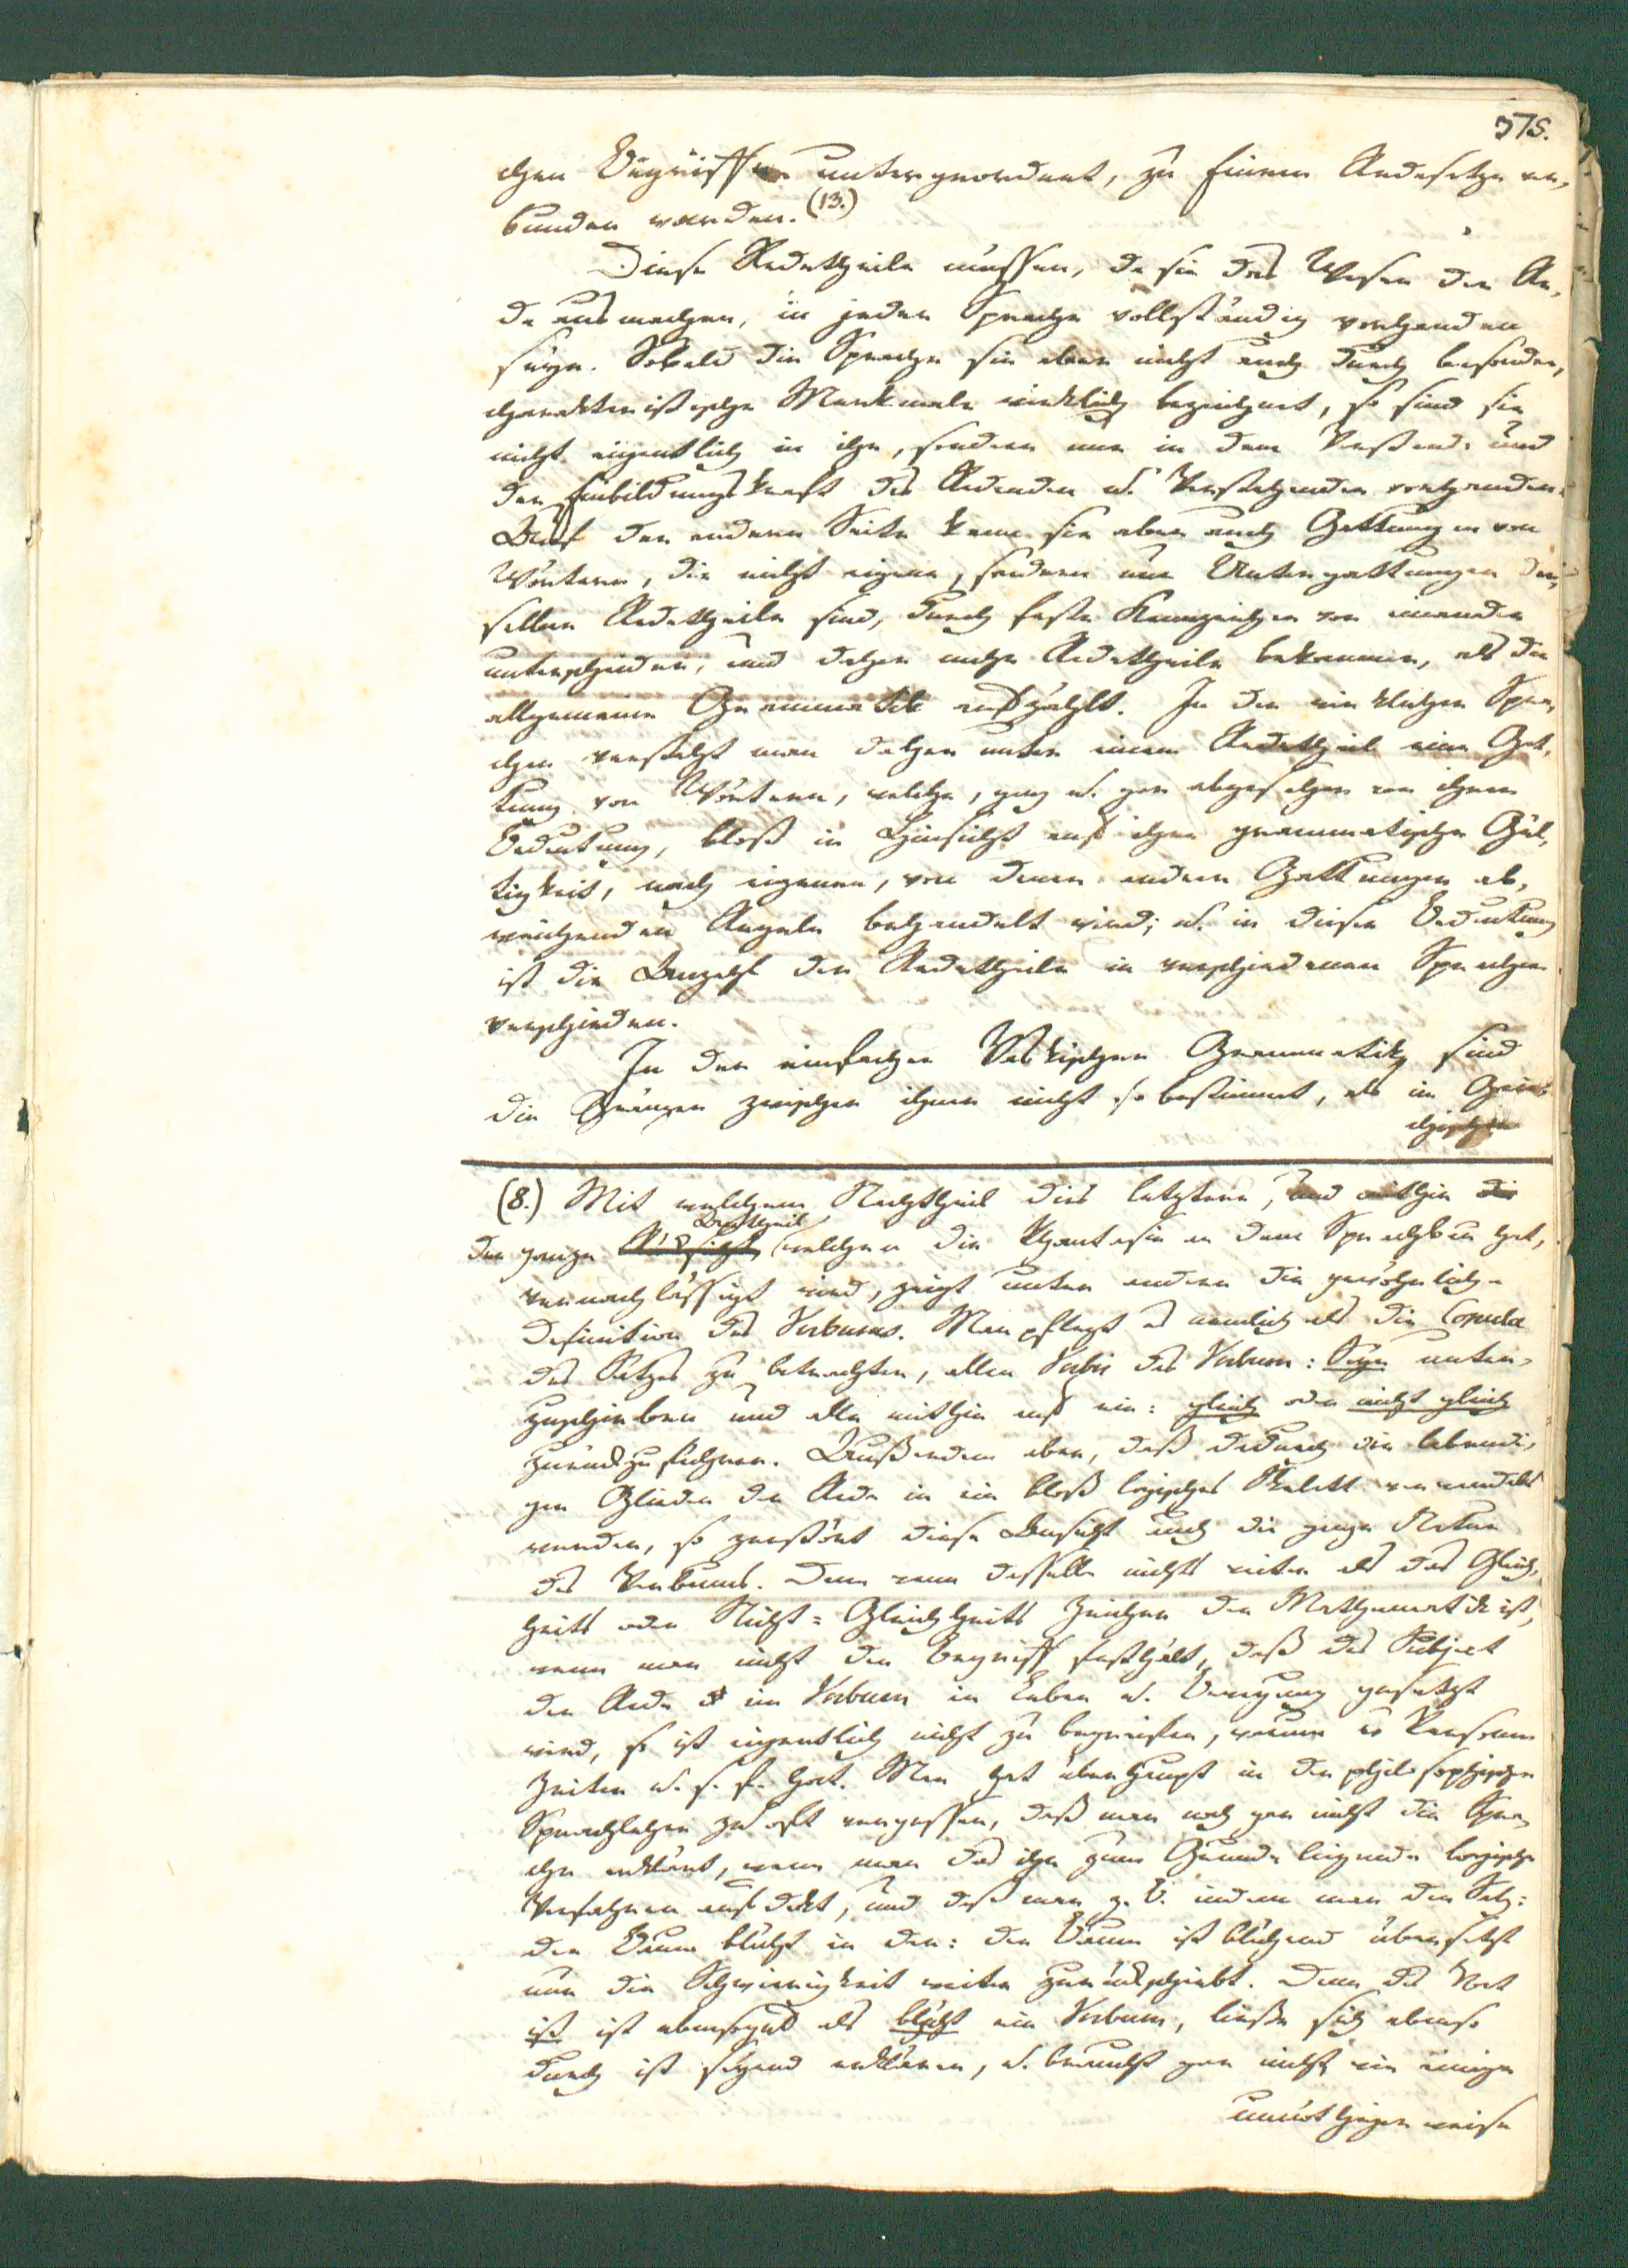 375.
chen Begriffen untergeordnet, zu Einem Redesatze ver-
bunden werden. (13.)
Diese Redetheile müssen, da sie das Wesen der Re-
de ausmachen, in jeder Sprache vollständig vorhanden
seyn. Sobald die Sprache sie aber nicht auch durch besondre,
charakteristische Merkmale wirklich bezeichnet, so sind sie
nicht eigentlich in ihr, sondern nur in dem Verstande und
der Einbildungskraft des Redenden u. Verstehenden vorhanden.
Auf der andern Seite kann sie aber auch Gattungen von
Wörtern, die nicht eigene, sondern nur Untergattungen der-
selben Redetheile sind, durch feste Kennzeichen von einander
unterscheiden, und daher mehr Redetheile bekommen, als die
allgemeine Grammatik aufzählt. In den wirklichen Spra-
chen versteht man daher unter einem Redetheil eine Gat-
tung von Wörtern, welche, ganz u. gar abgesehen von ihrer
Bedeutung, bloß in Hinsicht auf ihre grammatische Gül-
tigkeit, nach eigenen, von denen andrer Gattungen ab-
weichenden Regeln behandelt wird; u. in dieser Bedeutung
ist die Anzahl der Redetheile in verschiedenen Sprachen
verschieden.
In der einfachen Vaskischen Grammatik sind
die Gränzen zwischen ihnen nicht so bestimmt, als im Grie-
chischen
(8.) Mit welchem Nachtheil dies letztere, und mithin die
Antheil
der ganze Rücksicht welchen die Phantasie an dem Sprachbau hat,
vernachlässigt wird, zeigt unter andern die gewöhnliche
Definition des Verbums. Man pflegt es nemlich als die Copula
des Satzes zu betrachten, allen Verbis das Verbum: Seyn unter-
zuschieben und alle mithin auf ein: gleich oder nicht gleich
zurückzuführen. Außerdem aber, daß dadurch die lebendi-
gen Glieder der Rede in ein bloß logisches Skelett verwandelt
werden, so zerstört diese Ansicht auch die ganze Natur
des Verbums. Denn wenn dasselbe nichts weiter als das Gleich-
heits oder Nicht=Gleichheits Zeichen der Mathematik ist,
wenn man nicht den Begriff festhält, daß das Subject
der Rede im Verbum in Leben u. Bewegung gesetzt
wird, so ist eigentlich nicht zu begreifen, warum es Personen
Zeiten u. s. f. hat. Man hat überhaupt in der philosophischen
Sprachlehre zu oft vergessen, daß man noch gar nicht die Spra-
che erklärt, wenn man das ihr zum Grunde liegende logische
Verfahren aufdekt, und daß man z. B. indem man den Satz:
der Baum blüht in den: der Baum ist blühend übersetzt
nur die Schwierigkeit weiter zurückschiebt. Denn das Wort
ist ist ebensogut als blüht ein Verbum, ließe sich ebenso
durch ist seyend erklären, u. braucht gar nicht, wie einige
unnöthiger weise